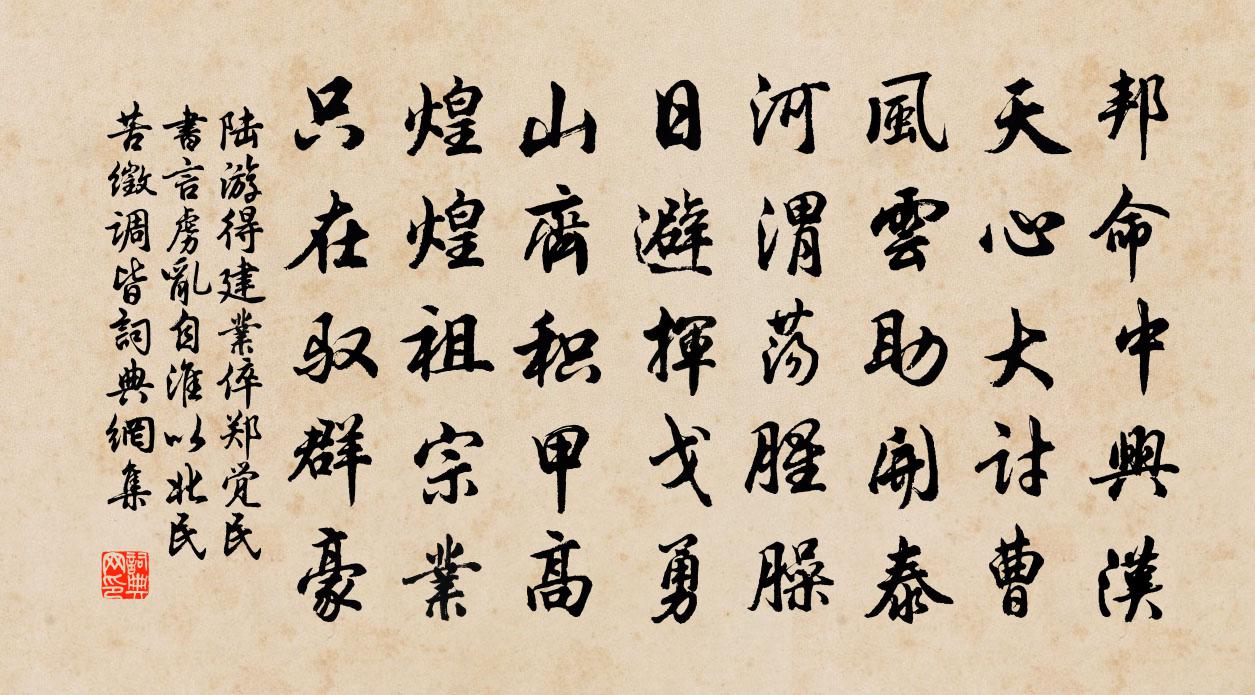 邦命中興漢
天心大討曹
風雲助開泰
河渭蕩腥臊
日避揮戈勇
山齊积甲高
煌煌祖宗業
只在驭群豪
陆游得建業倅郑觉民
書言虜亂自淮以北民
苦徵调皆詞典網集
詞典
网印